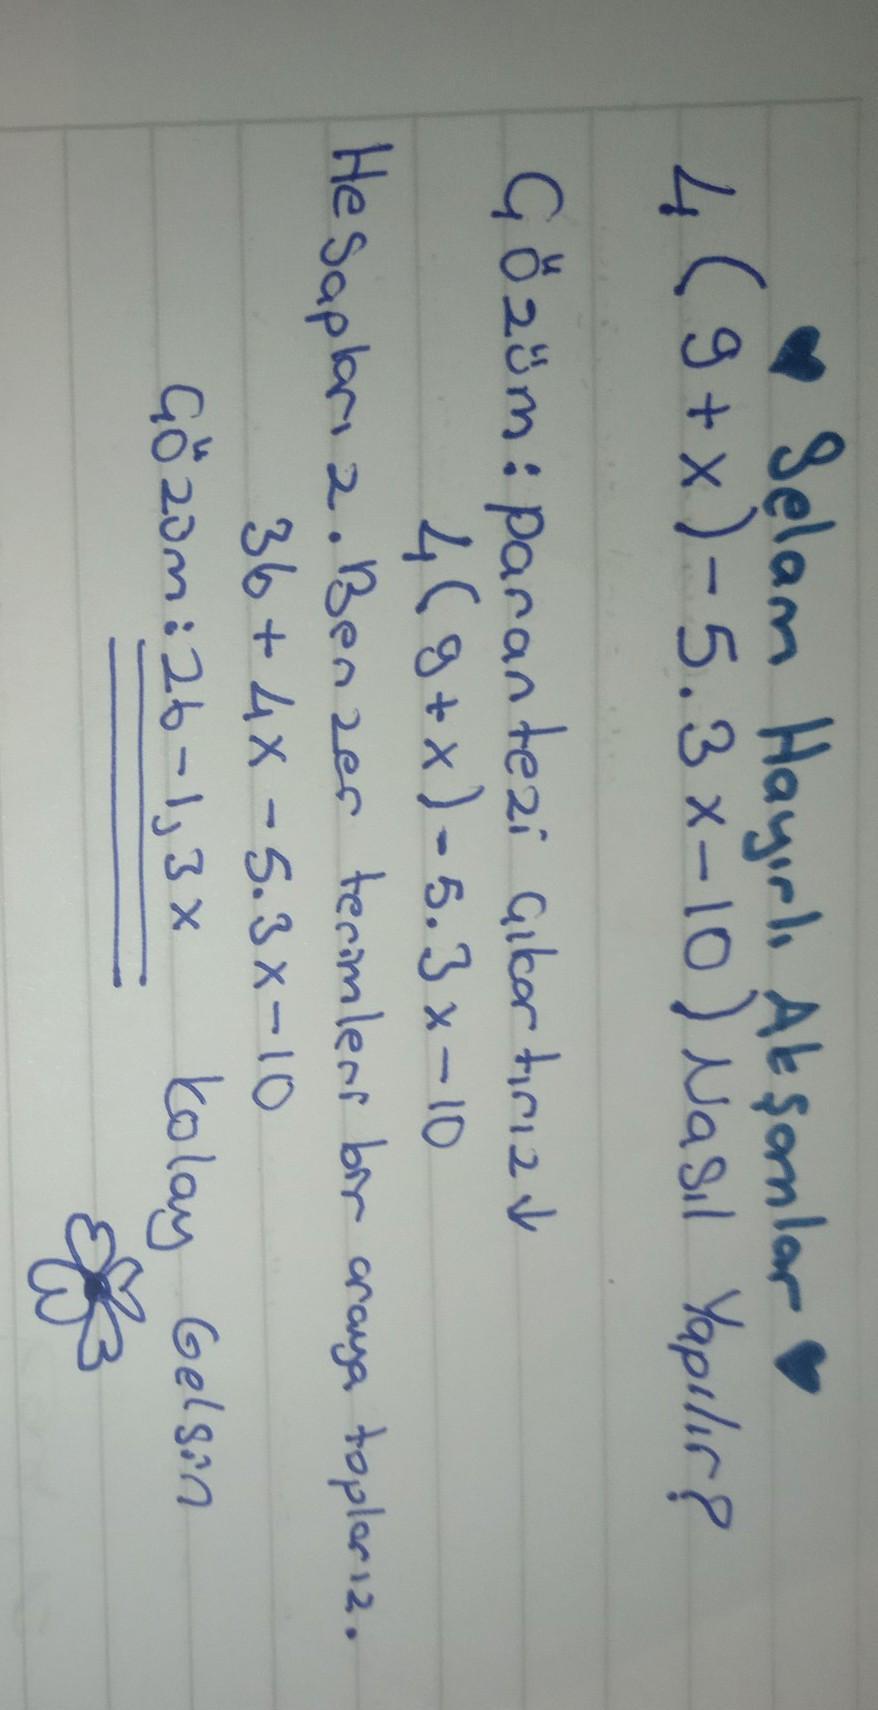 ♥ Selam Hayırlı Akşamlar ♥
4(9+x)-5.3x-10) Nasıl Yapılır?
Çözüm: parantezi çıkartırız↓
4(9+x)-5.3x-10
Hesaplarız. Benzer terimleri bir araya toplarız.
36+4x-5.3x-10
Çözüm: 26-1,3x Kolay Gelsin